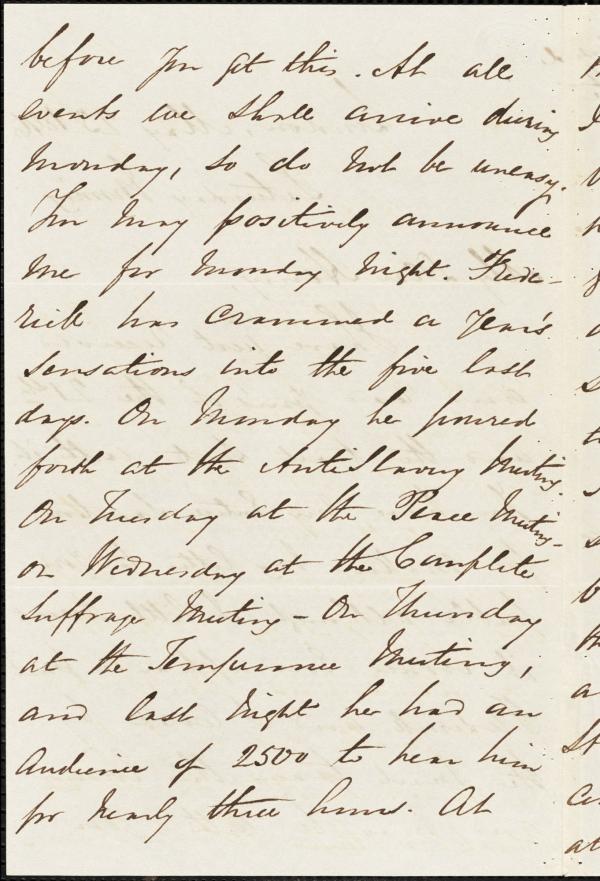 before you get this. At all
events we shall arrive during
Monday, so do not be uneasy.
You may positively announce
me for Monday night. Frede-
rick has crammed a year's
sensations into the five last
days. On Monday he poured
forth at the AntiSlavery Meeting.
On Tuesday at the Peace Meeting-
on Wednesday at the Complete
Suffrage Meeting - On Thursday
at the Temperance Meeting,
and last night he had an
audience of 2500 to hear him
for nearly three hours. At